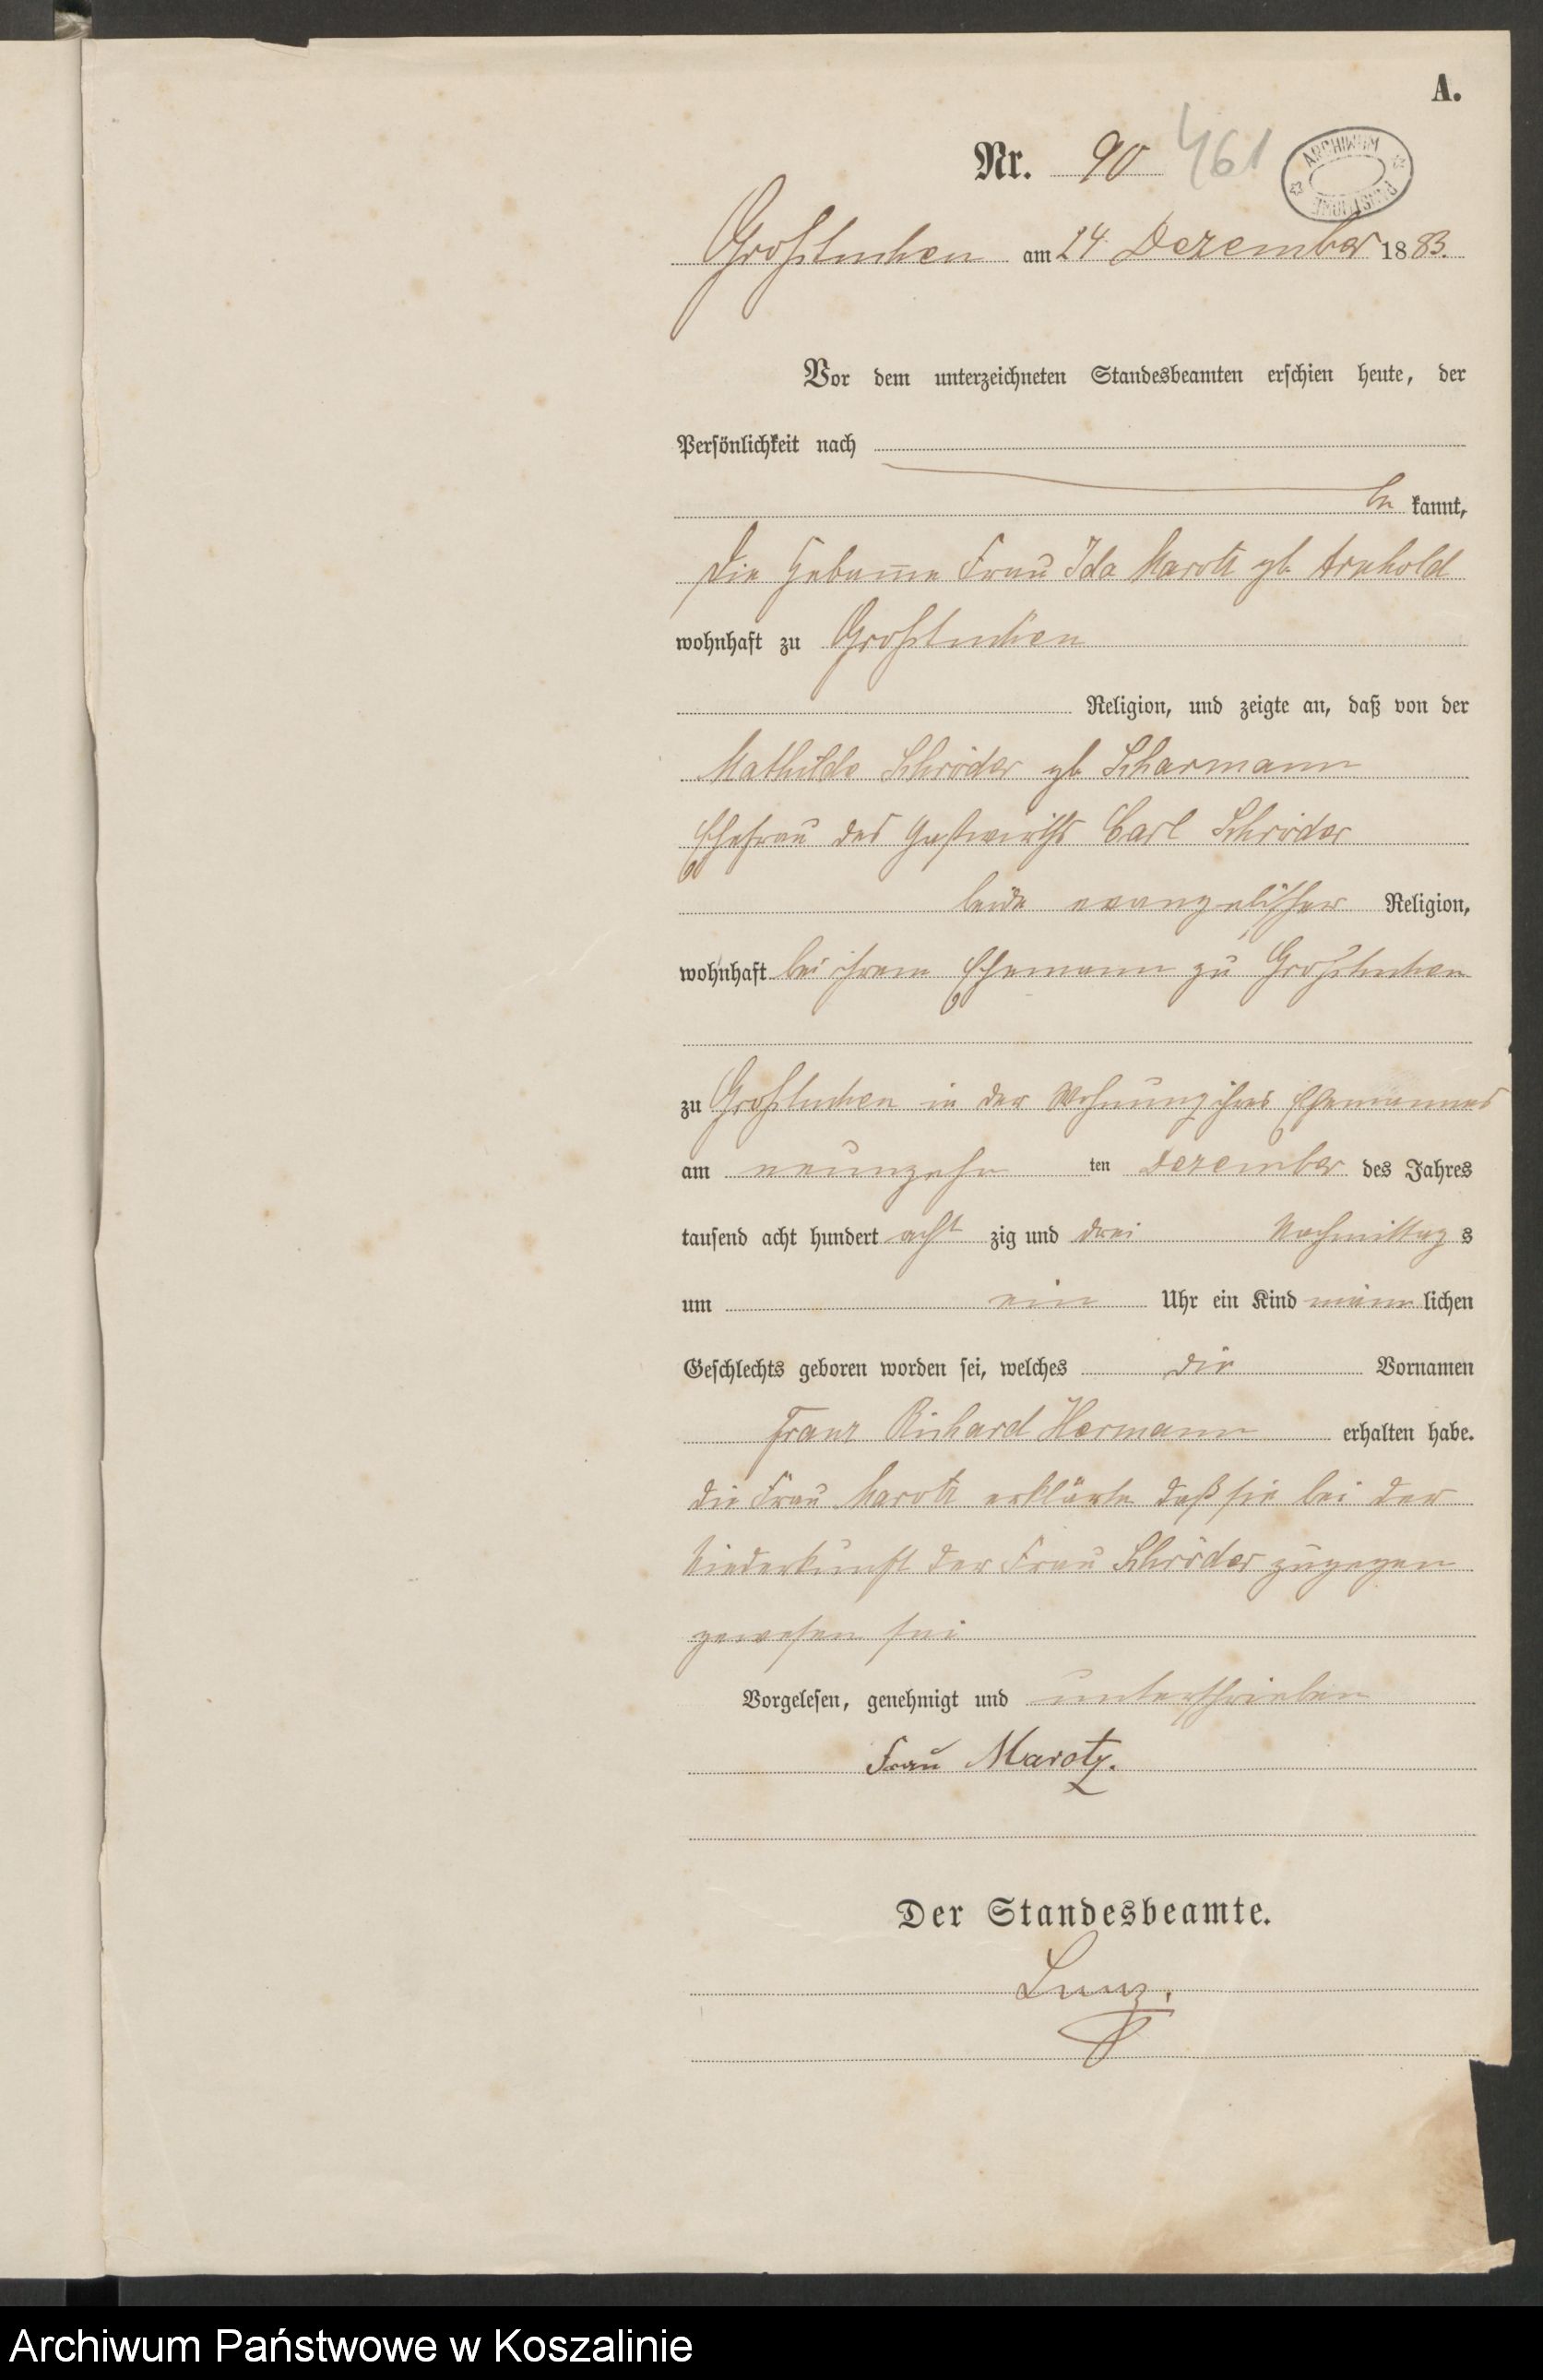 A.
Nr. 90 461
ARCHIWUM PAŃSTWOWE
Großtuchen am 24. Dezember 1883.
Vor dem unterzeichneten Standesbeamten erschien heute, der
Persönlichkeit nach
be kannt,
die Hebamme Frau Ida Marotz gb. Arnhold
wohnhaft zu Großtuchen
Religion, und zeigte an, daß von der
Mathilde Schröder gb. Scharmann
Ehefrau des Gastwirths Carl Schröder
beide evangelischer Religion,
wohnhaft bei ihrem Ehemann zu Großtuchen
zu Großtuchen in der Wohnung ihres Ehemannes
am neunzehn ten Dezember des Jahres
tausend acht hundert acht zig und drei Nachmittag s
um ein Uhr ein Kind männ lichen
Geschlechts geboren worden sei, welches die Vornamen
Franz Richard Hermann erhalten habe.
Die Frau Marotz erklärte daß sie bei der
Niederkunft der Frau Schröder zugegen
gewesen sei
Vorgelesen, genehmigt und unterschrieben
Frau Marotz.
Der Standesbeamte.
Lunz.
Archiwum Państwowe w Koszalinie